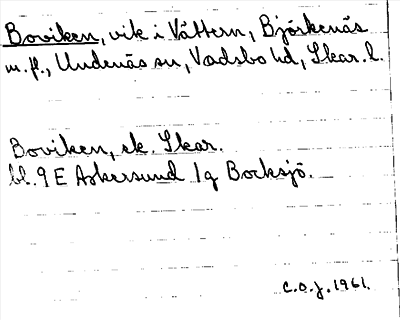 Boviken, vik i Vättern, Björkenäs
m.fl., Undenäs sn, Vadsbo hd, Skar. l.
Boviken, ek. Skar.
bl. 9 E Askersund 1g Bocksjö.
C.O.J. 1961.